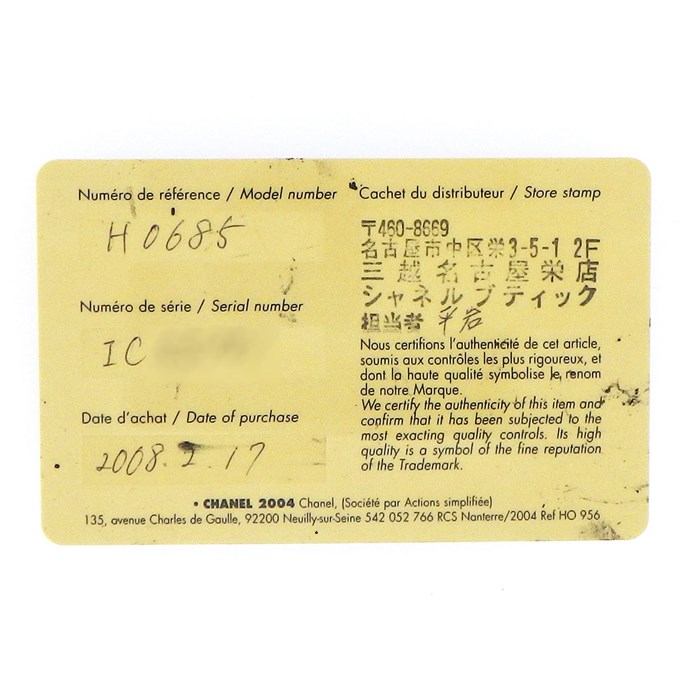 Numéro de référence / Model number
H0685
Numéro de série / Serial number
IC
Date d'achat / Date of purchase
2008.2.17
Cachet du distributeur / Store stamp
〒460-8669
名古屋市中区栄3-5-1 2F
三越名古屋栄店
シャネルブティック
担当者 平岩
Nous certifions l'authenticité de cet article,
soumis aux contrôles les plus rigoureux, et
dont la haute qualité symbolise le renom
de notre Marque.
We certify the authenticity of this item and
confirm that it has been subjected to the
most exacting quality controls. Its high
quality is a symbol of the fine reputation
of the Trademark.
• CHANEL 2004 Chanel, (Société par Actions simplifiée)
135, avenue Charles de Gaulle, 92200 Neuilly-sur-Seine 542 052 766 RCS Nanterre/2004 Ref HO 956